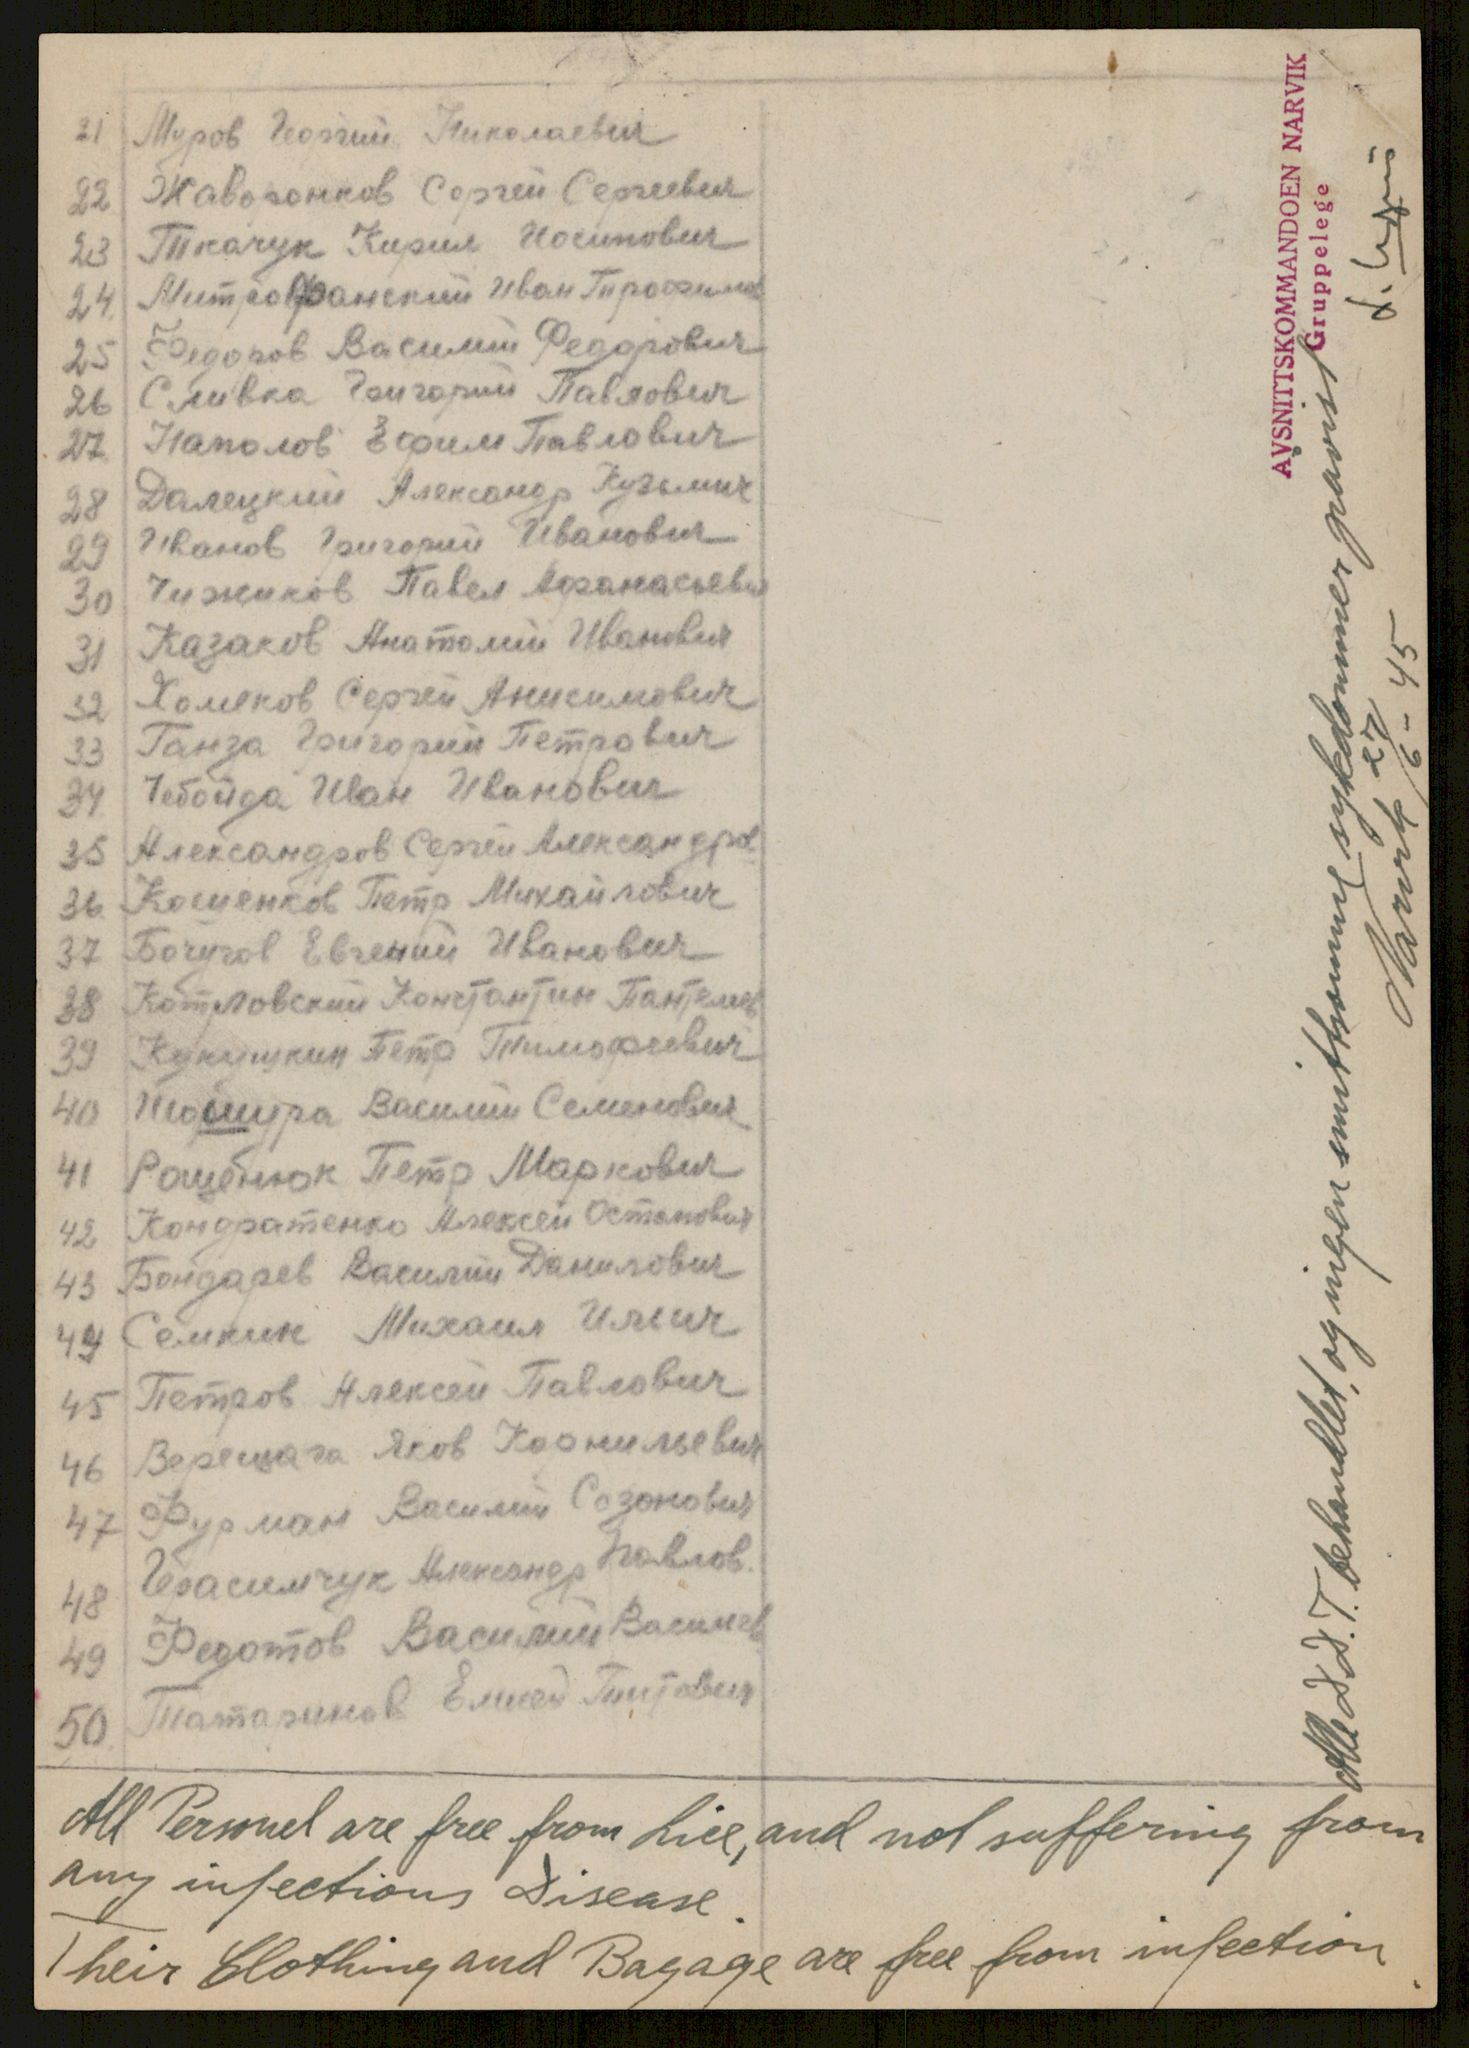 21 Муров Георгий Николаевич
22 Жаворонков Сергей Сергеевич
23 Ткачук Кирил Иосипович
24. Митрофанский Иван Трофимов
25 Федоров Василий Федорович
26 Сливка Григорий Павлович
27. Наполов Ефим Павлович
28 Далецкий Александр Кузьмич
29 Иванов Григорий Иванович
30 Чижиков Павел Афанасьеви
31 Казаков Анатолий Иванович
32 Хомеков Сергей Анисимович
33 Ганза Григорий Петрович
34. Чебойда Иван Иванович
35 Александров Сергей Александров
36. Кошенков Петр Михайлович
37 Бочугов Евгений Иванович
38 Котловский Константин Пантелеев
39 Кукушкин Петр Тимофеевич
40 Василий Семенович
41 Ращенюк Петр Маркович
42 Кондратенко Алексей Остапович
43 Бондарев Василий Данилович
44 Семкин Михаил Ильич
45 Петров Алексей Павлович
46 Верещага Яков Корнильевич
47 Фурман Василий Созонович
48 Герасимчук Александр Павлов.
49 Федотов Василий Васильев
50. Татаринов Елисей Титович
All Personel are free from Lice, and not suffering from
any infectious Disease.
Their Clothing and Bagage are free from infection.
AVSNITTSKOMMANDOEN NARVIK
Gruppelege
Alle D.D.T. behandlet, og ingen smittsomme sykdommer påvist
Narvik 27/6-45